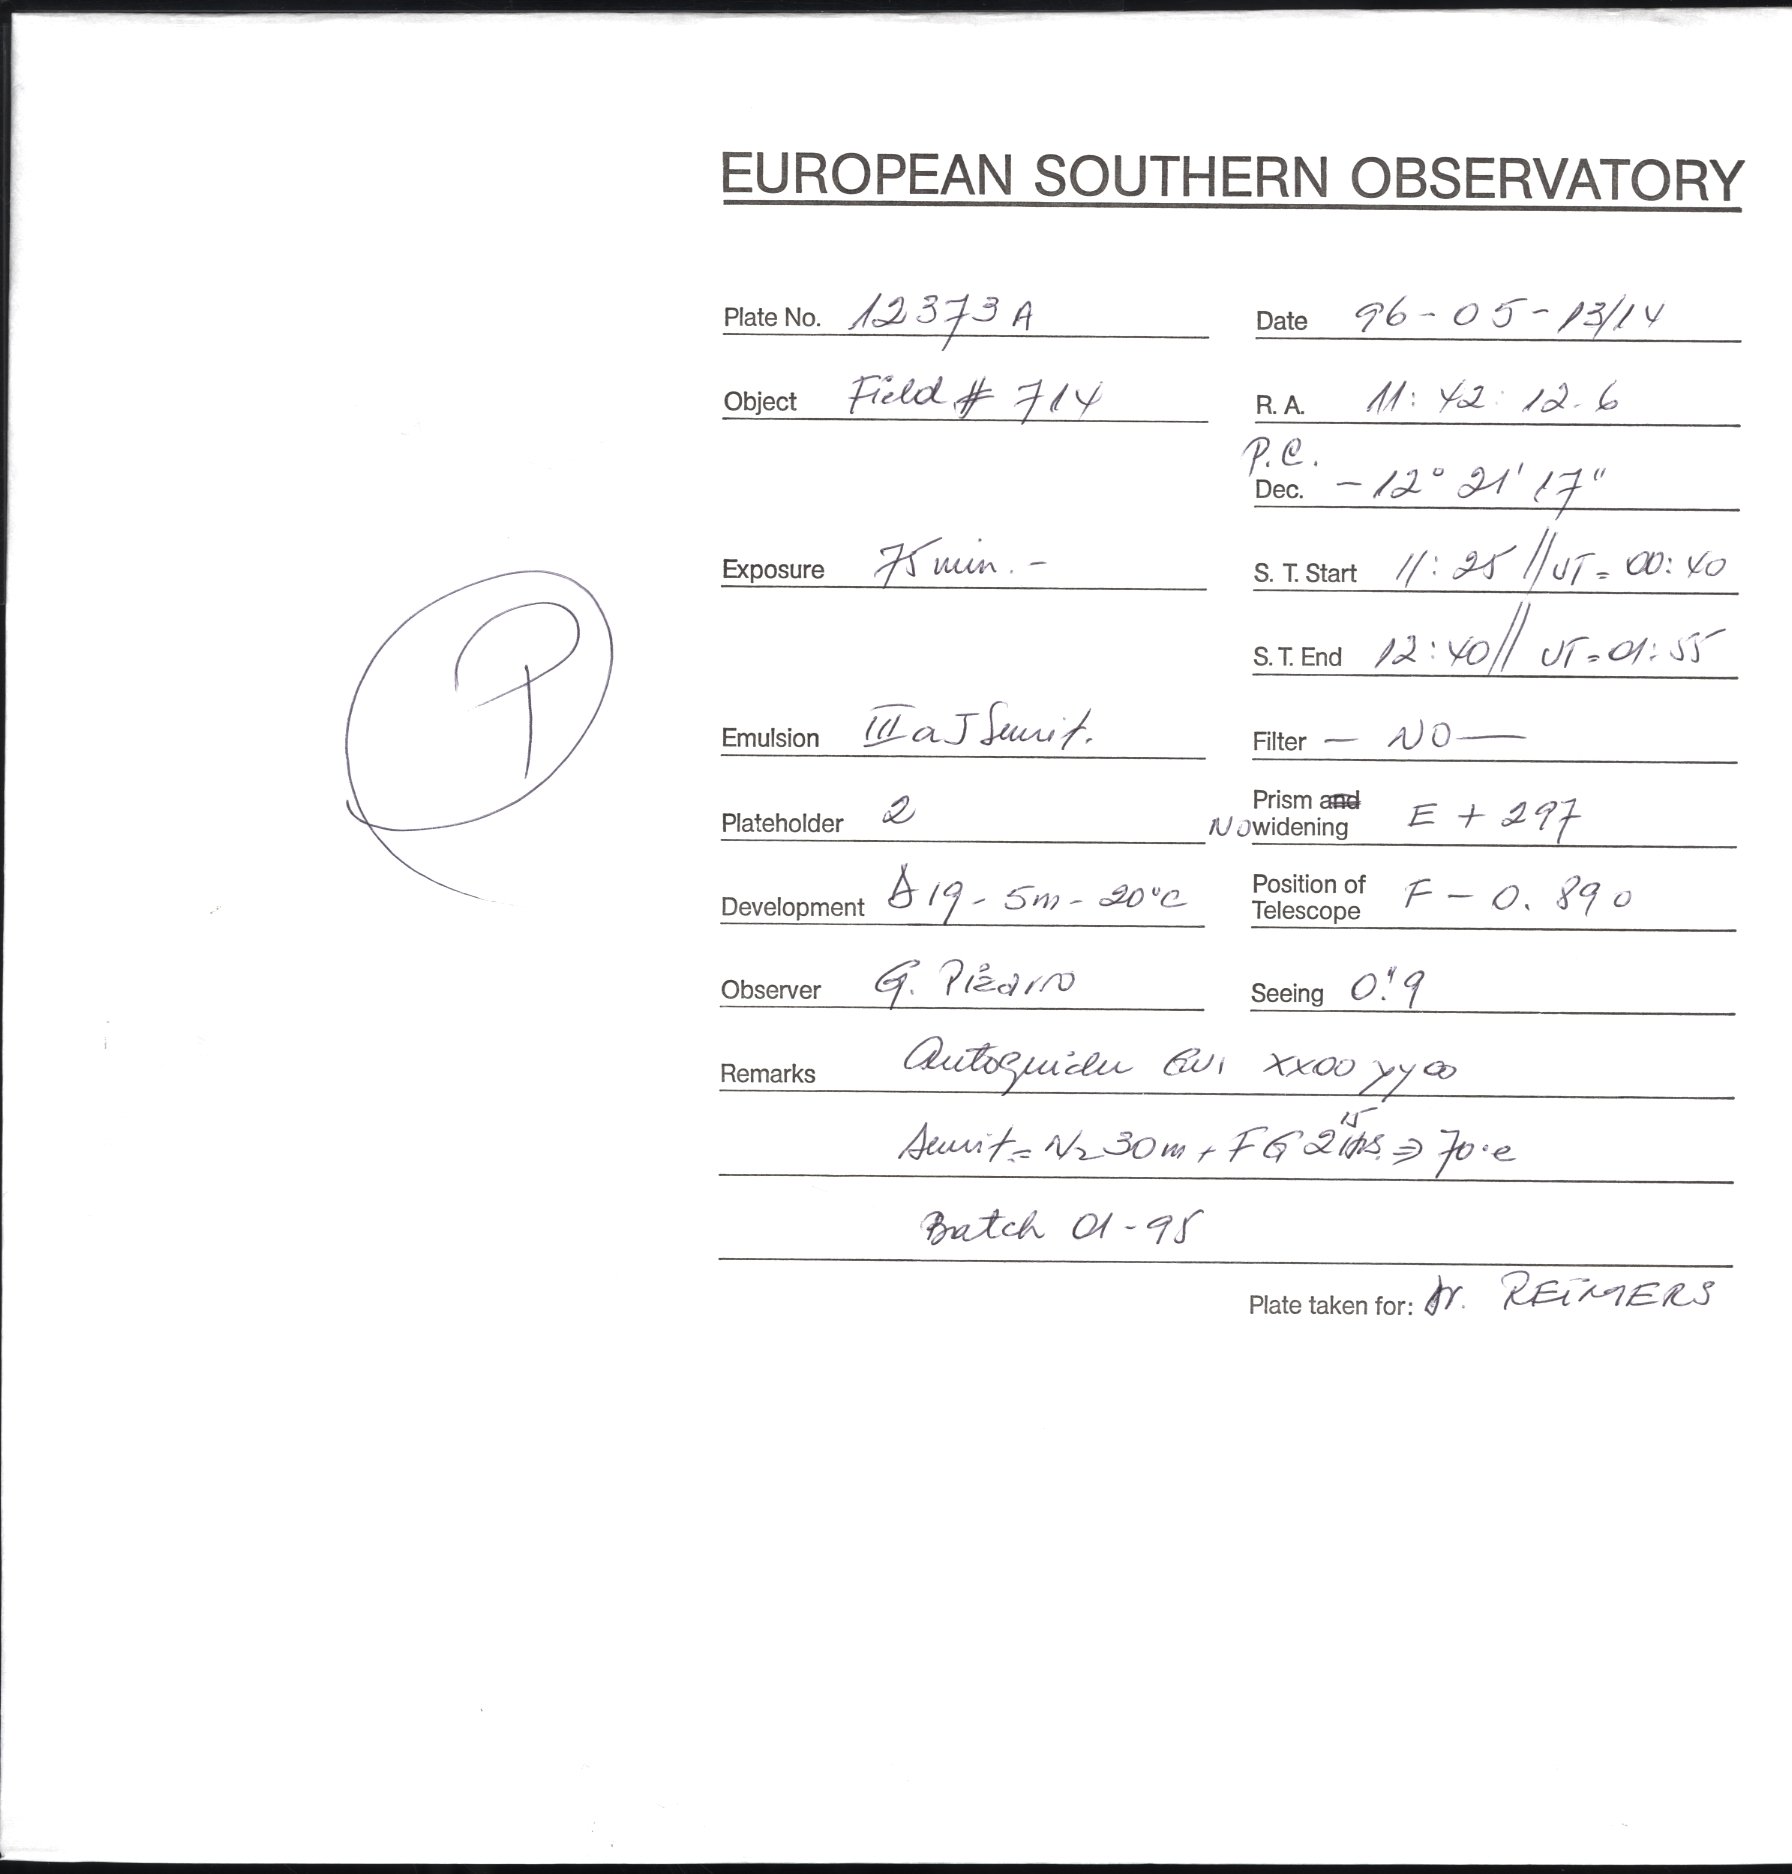 EUROPEAN SOUTHERN OBSERVATORY
Plate No. 12373 A
Date 96-05-13/14
Object Field # 714
R. A. 11: 42: 12.6
P.C.
Dec. -12° 21' 17"
Exposure 75 min. -
S. T. Start 11: 25 // UT = 00: 40
S. T. End 12: 40 // UT = 01: 55
Emulsion III a J Sensit.
Filter — NO —
Plateholder 2
Prism and
NO widening E + 297
Development D 19 - 5m - 20°C
Position of
Telescope F - 0. 890
Observer G. Pizarro
Seeing 0."9
Remarks Autoguider XX00 YY00
Sensit = N2 30m + FG 2 15 ⇒ 70°c
Batch 01-95
Plate taken for: Dr. REIMERS
P